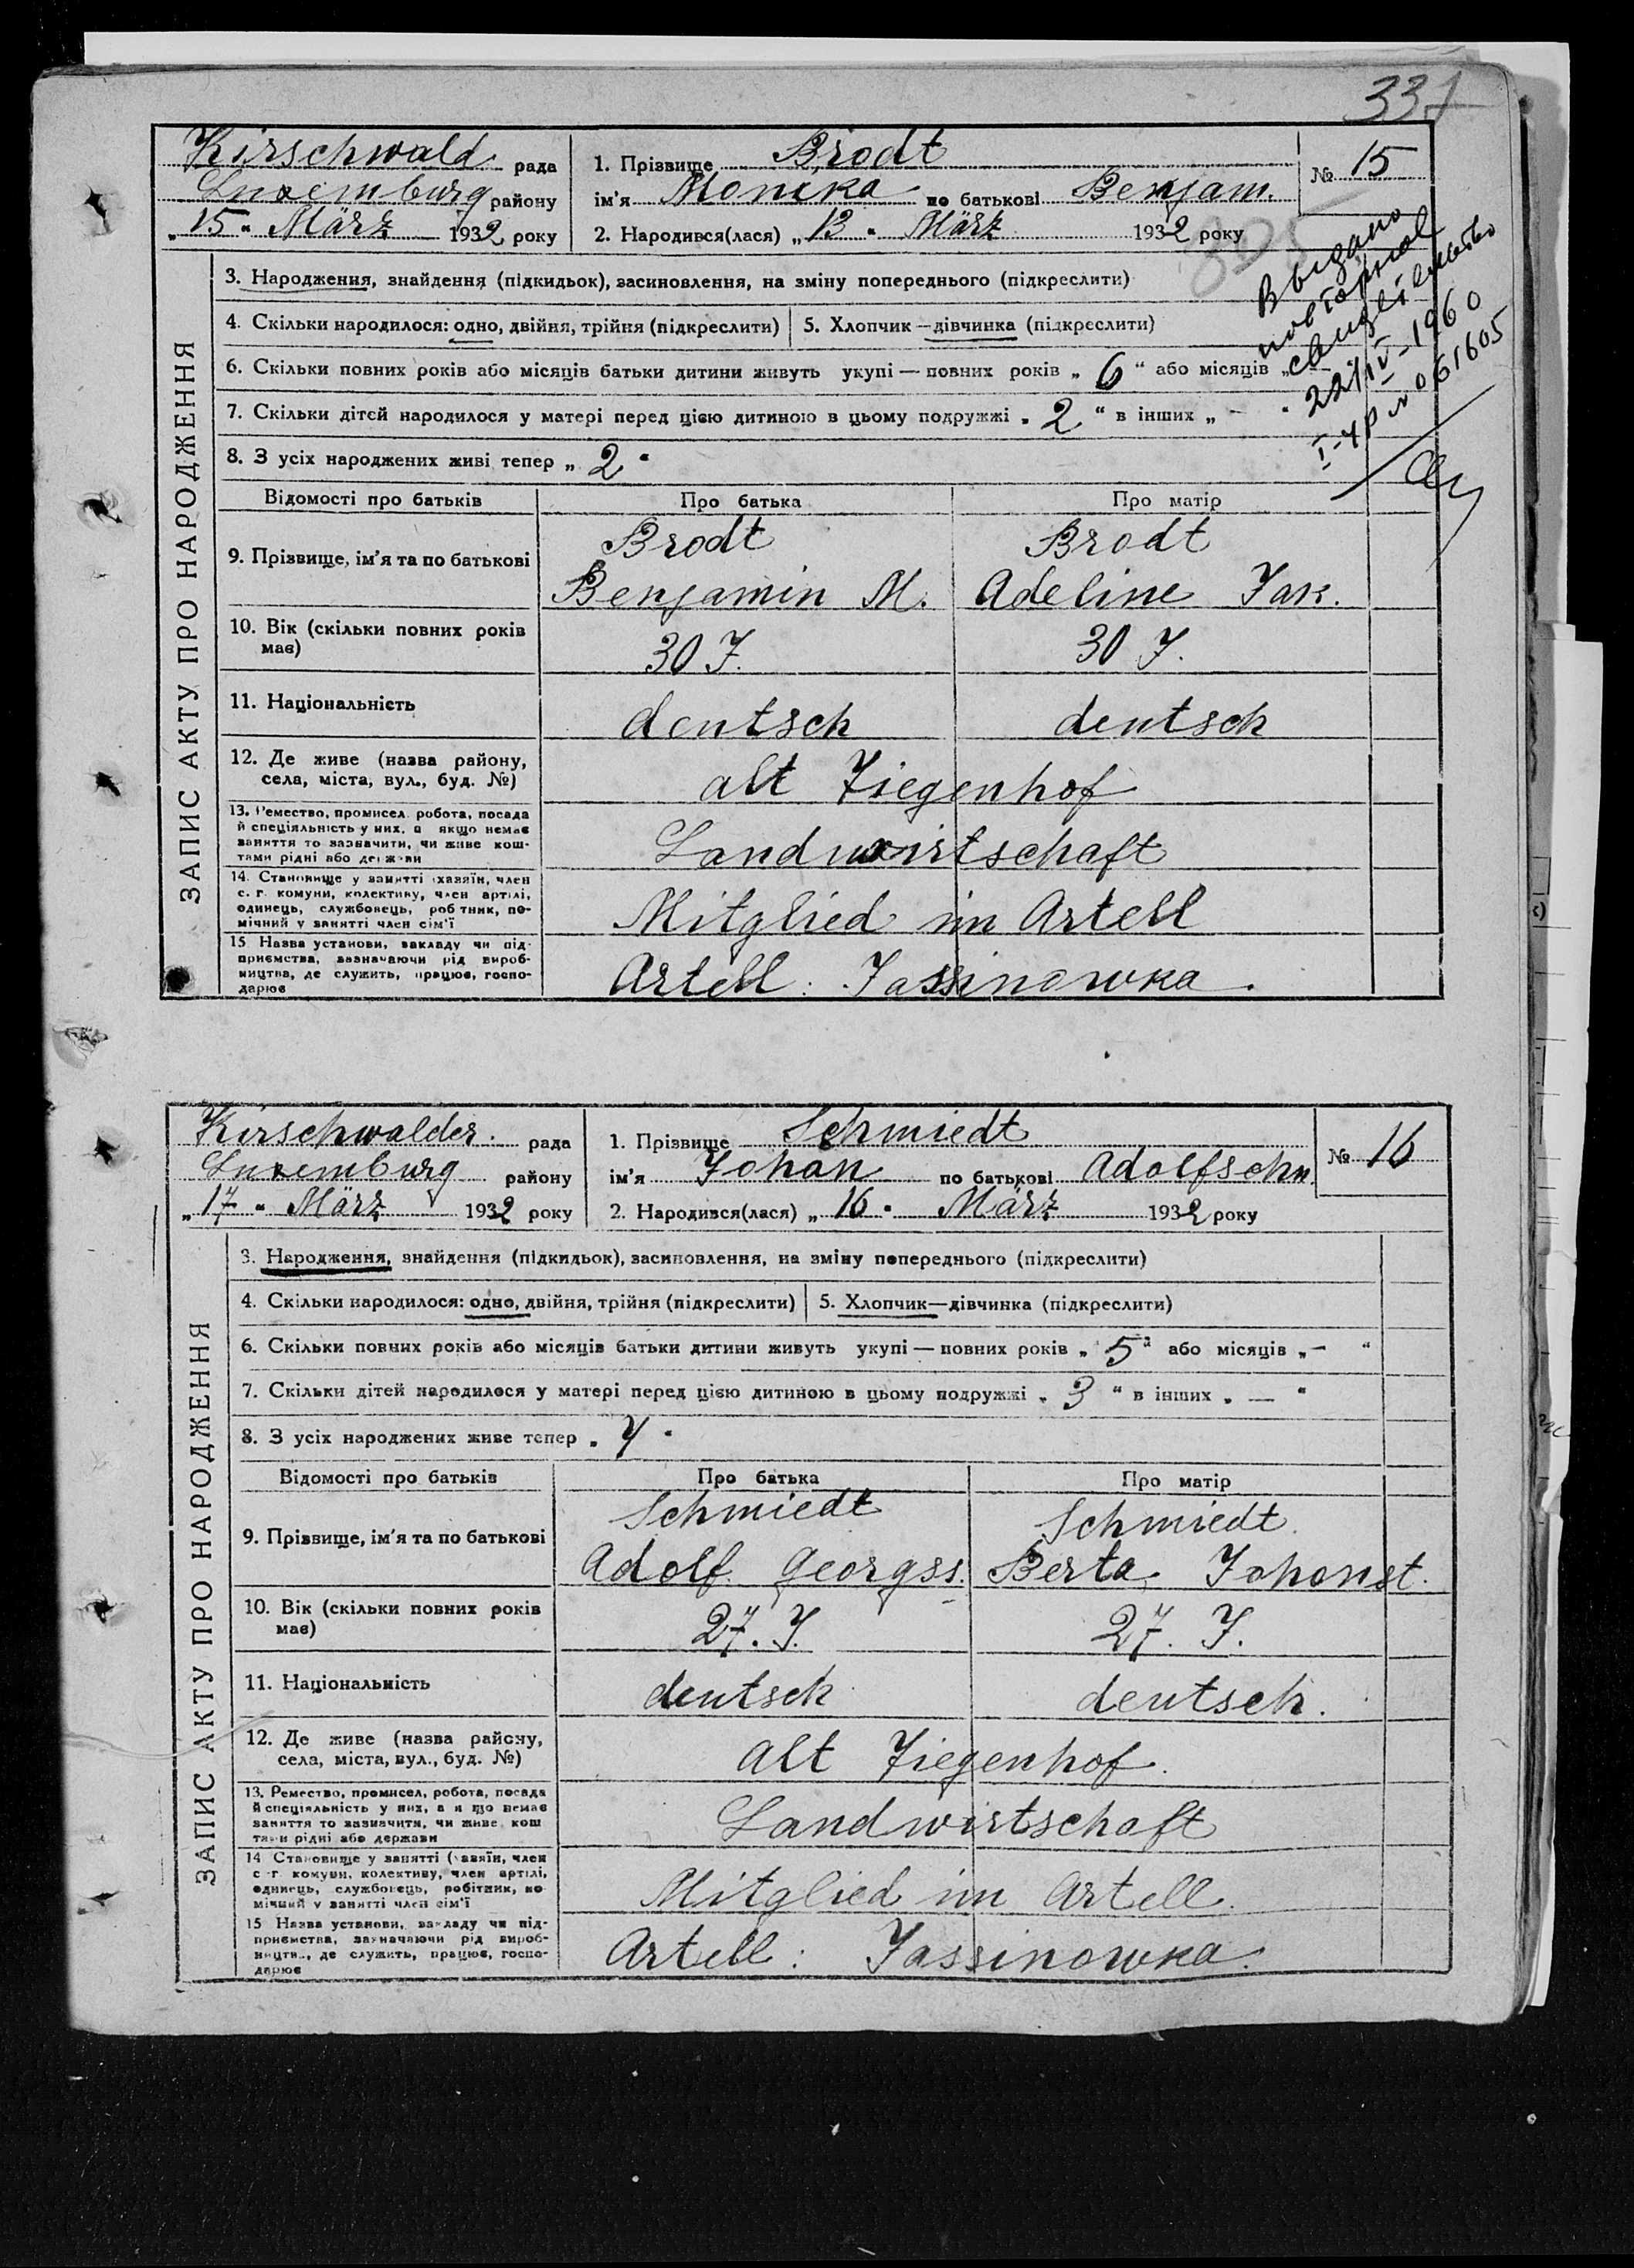 331
Kirschwald рада
Luxemburg району
„15" März 1932 року
1. Прізвище Brodt
ім'я Monika по батькові Benjam.
2. Народився(лася) „13" März 1932 року
№ 15
Выдано
повторное
свидетельство
22/IV-1960
I-УР № 061605
ЗАПИС АКТУ ПРО НАРОДЖЕННЯ
3. Народження, знайдення (підкидьок), засиновлення, на зміну попереднього (підкреслити)
4. Скільки народилося: одно, двійня, трійня (підкреслити) 5. Хлопчик—дівчинка (підкреслити)
6. Скільки повних років або місяців батьки дитини живуть укупі — повних років „6" або місяців „
7. Скільки дітей народилося у матері перед цією дитиною в цьому подружжі „2" в інших „-"
8. З усіх народжених живі тепер „2"
Відомості про батьків Про батька Про матір
9. Прізвище, ім'я та по батькові
Brodt Brodt
Benjamin M. Adeline Jak.
10. Вік (скільки повних років має) 30 J. 30 J.
11. Національність deutsch deutsch
12. Де живе (назва району,
села, міста, вул., буд. №)
alt Ziegenhof
13. Ремество, промисел, робота, посада
й спеціяльність у них, а якщо немає
заняття то зазначити, чи живе кош-
тами рідні або держави
Landwirtschaft
14. Становище у занятті хазяїн, член
с. г. комуни, колективу, член артілі,
одинець, службовець, робітник, по-
мічний у занятті член сім'ї
Mitglied im Artell
15. Назва установи, закладу чи під-
приємства, зазначаючи рід вироб-
ництва, де служить, працює, госпо-
дарює
Artell: Jassinowka.
Kirschwalder. рада
Luxemburg району
„17" März 1932 року
1. Прізвище Schmiedt
ім'я Johan по батькові Adolfsohn.
2. Народився(лася) „16" März 1932 року
№ 16
ЗАПИС АКТУ ПРО НАРОДЖЕННЯ
3. Народження, знайдення (підкидьок), засиновлення, на зміну попереднього (підкреслити)
4. Скільки народилося: одно, двійня, трійня (підкреслити) 5. Хлопчик—дівчинка (підкреслити)
6. Скільки повних років або місяців батьки дитини живуть укупі — повних років „5" або місяців „-"
7. Скільки дітей народилося у матері перед цією дитиною в цьому подружжі „3" в інших „—"
8. З усіх народжених живе тепер „4"
Відомості про батьків Про батька Про матір
9. Прізвище, ім'я та по батькові
Schmiedt Schmiedt.
Adolf. Georgss. Berta. Johonst.
10. Вік (скільки повних років має) 27. J. 27. J.
11. Національність deutsch deutsch.
12. Де живе (назва району,
села, міста, вул., буд. №)
alt Ziegenhof.
13. Ремество, промисел, робота, посада
й спеціяльність у них, а якщо немає
заняття то зазначити, чи живе кош
тами рідні або держави
Landwirtschaft
14 Становище у занятті (хазяїн, член
с г. комуни, колективу, член артілі,
одинець, службовець, робітник, по
мічний у занятті член сім'ї
Mitglied im Artell.
15 Назва установи, закладу чи під-
приємства, зазначаючи рід вироб-
ництв., де служить, працює, госпо-
дарює
Artell: Jassinowka.